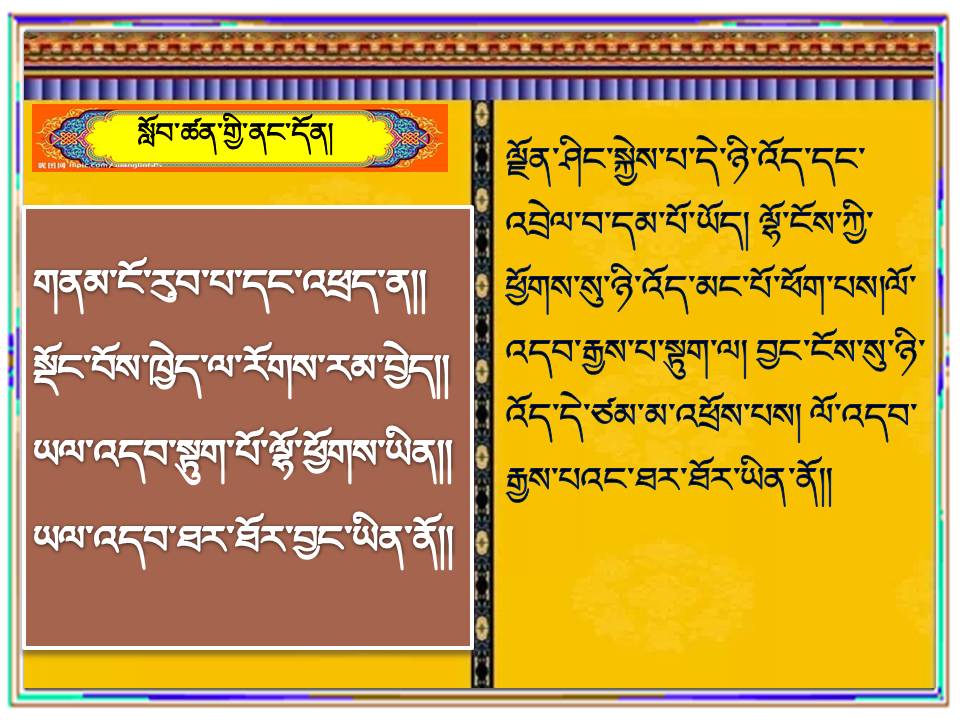 སློབ་ཚན་གྱི་ནང་དོན།
གནམ་ངོ་རུབ་པ་དང་འཕྲད་ན།།
སྡོང་བོས་ཁྱེད་ལ་རོགས་རམ་བྱེད།།
ཡལ་འདབ་སྟུག་པོ་ལྷོ་ཕྱོགས་ཡིན།།
ཡལ་འདབ་ཐར་ཐོར་བྱང་ཡིན་ནོ།།
ལྗོན་ཤིང་སྐྱེས་པ་དེ་ཉི་འོད་དང་
འབྲེལ་བ་དམ་པོ་ཡོད། ལྷོ་ངོས་ཀྱི་
ཕྱོགས་སུ་ཉི་འོད་མང་པོ་ཕོག་པས།ལོ་
འདབ་རྒྱས་པ་སྟུག་ལ། བྱང་ངོས་སུ་ཉི་
འོད་དེ་ཙམ་མ་འཕྲོས་པས། ལོ་འདབ་
རྒྱས་པའང་ཐར་ཐོར་ཡིན་ནོ།།